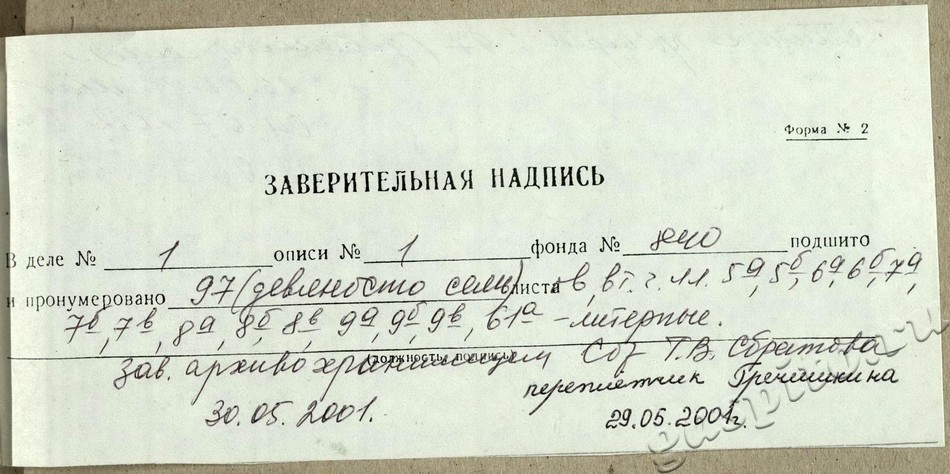 Форма № 2
ЗАВЕРИТЕЛЬНАЯ НАДПИСЬ
В деле № 1 описи № 1 фонда № 840 подшито
и пронумеровано 97 (девяносто семь) листа -ов, в т.ч. лл. 5а, 5б, 6а, 6б, 7а,
7б, 7в, 8а, 8б, 8в, 9а, 9б, 9в, 61а - литерные.
(должность, подпись)
Зав. архивохранилищем Т.В.
переплётчик Гречишкина
30.05.2001. 29.05.2001г.